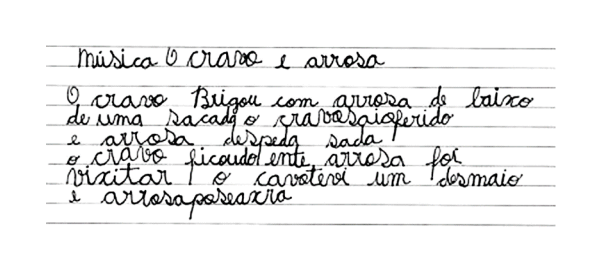 música O cravo e arrosa
O cravo Brigou com arrosa de baixo
de uma sacada o cravosaioferido
e arrosa despeda sada
o cravo ficoudoente arrosa foi
vixitar o cavotevi um desmaio
e arrosaposeaxra